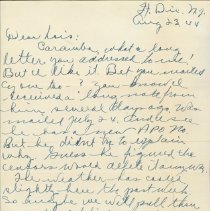 Ft. Dix, N.J.
Aug 23, 44
Dear Lois:
Caramba, what a long
letter you addressed to me!
But I like it. Bet you mailed
one too - ? you
received a long
several days ago. Was
mailed July 24.
he has a new APO No.
But he didn't try to explain
why. Guess he figured the
censors would delete it anyway.
The weather has cooled
slightly here the past week.
So maybe we will pull thru